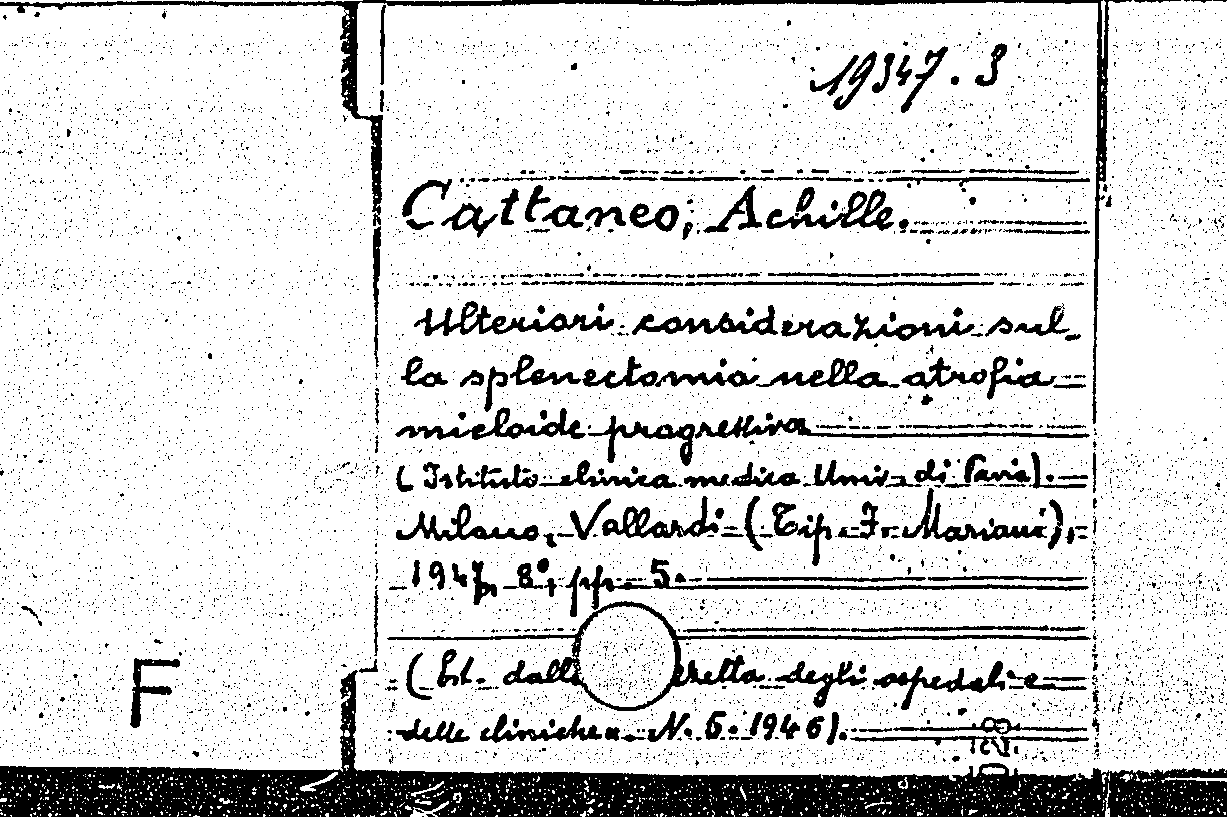 19347.3
Cattaneo, Achille.
Ulteriori considerazioni sul-
la splenectomia nella atrofia
mieloide progressiva
(Istituto clinica medica Univ. di Pavia).
Milano, Vallardi (Tip. F. Mariani),
1947, 8°, pp. 5.
(Est. dalla degli ospedali e
delle cliniche". N. 5. 1946).
F